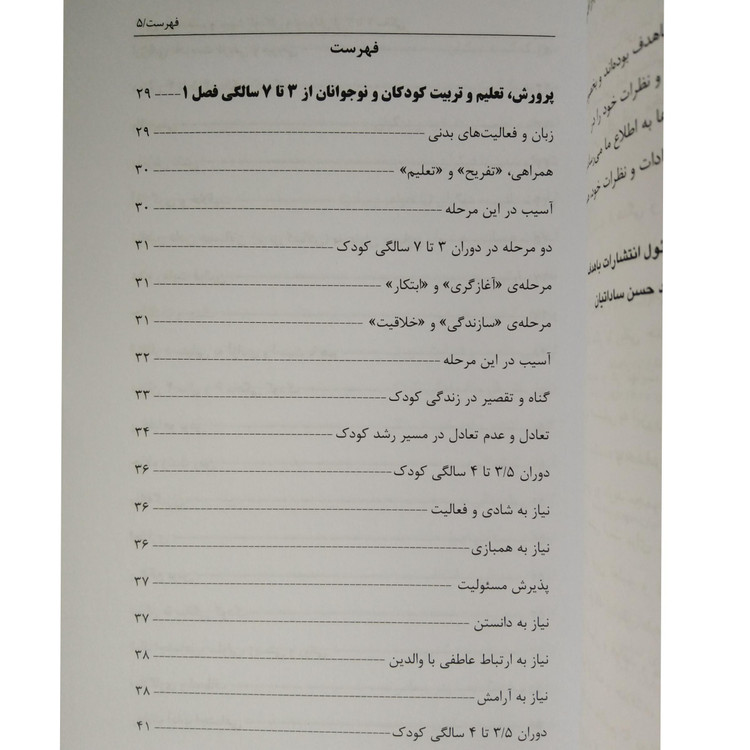 فهرست/۵
فهرست
پرورش، تعلیم و تربیت کودکان و نوجوانان از ۳ تا ۷ سالگی فصل ۱ ---- ۲۹
زبان و فعالیت‌های بدنی ---- ۲۹
همراهی، «تفریح» و «تعلیم» ---- ۳۰
آسیب در این مرحله ---- ۳۰
دو مرحله در دوران ۳ تا ۷ سالگی کودک ---- ۳۱
مرحله‌ی «آغازگری» و «ابتکار» ---- ۳۱
مرحله‌ی «سازندگی» و «خلاقیت» ---- ۳۱
آسیب در این مرحله ---- ۳۲
گناه و تقصیر در زندگی کودک ---- ۳۳
تعادل و عدم تعادل در مسیر رشد کودک ---- ۳۴
دوران ۳/۵ تا ۴ سالگی کودک ---- ۳۶
نیاز به شادی و فعالیت ---- ۳۶
نیاز به همبازی ---- ۳۶
پذیرش مسئولیت ---- ۳۷
نیاز به دانستن ---- ۳۷
نیاز به ارتباط عاطفی با والدین ---- ۳۸
نیاز به آرامش ---- ۳۸
دوران ۳/۵ تا ۴ سالگی کودک ---- ۴۱
بوده‌اند
و نظرات خود را در
ما به اطلاع ما
و نظرات خود
انتشارات
حسن ساداتیان